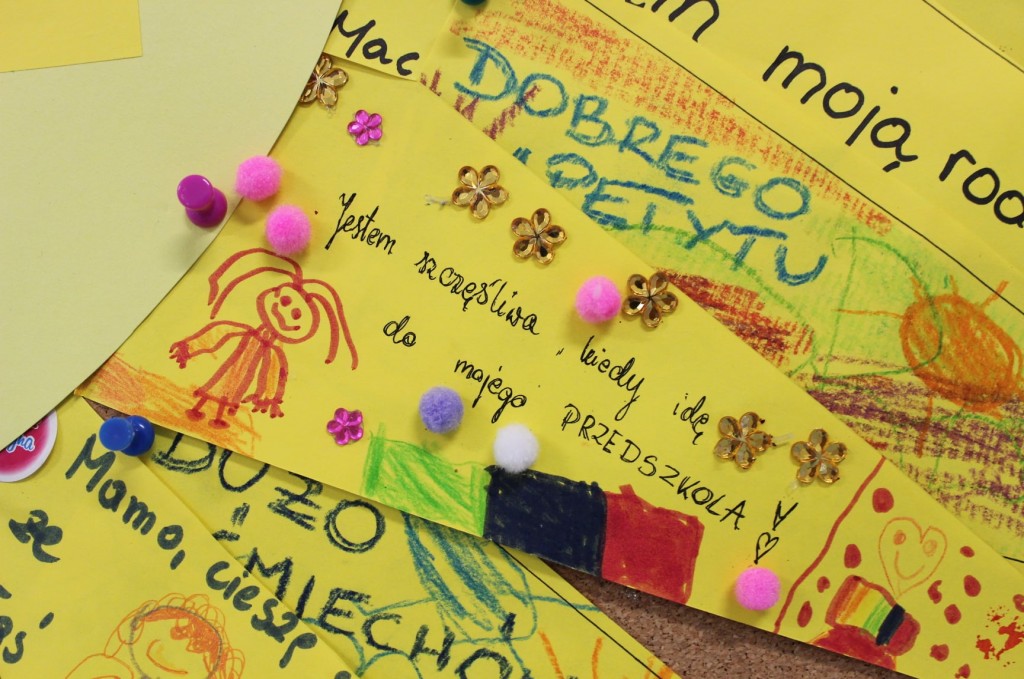 moją rod
Mac
DOBREGO
APETYTU
Jestem szczęśliwa, kiedy idę
do mojego PRZEDSZKOLA
DUŻO
ŚMIECHÓ
Mamo, ciesz
że